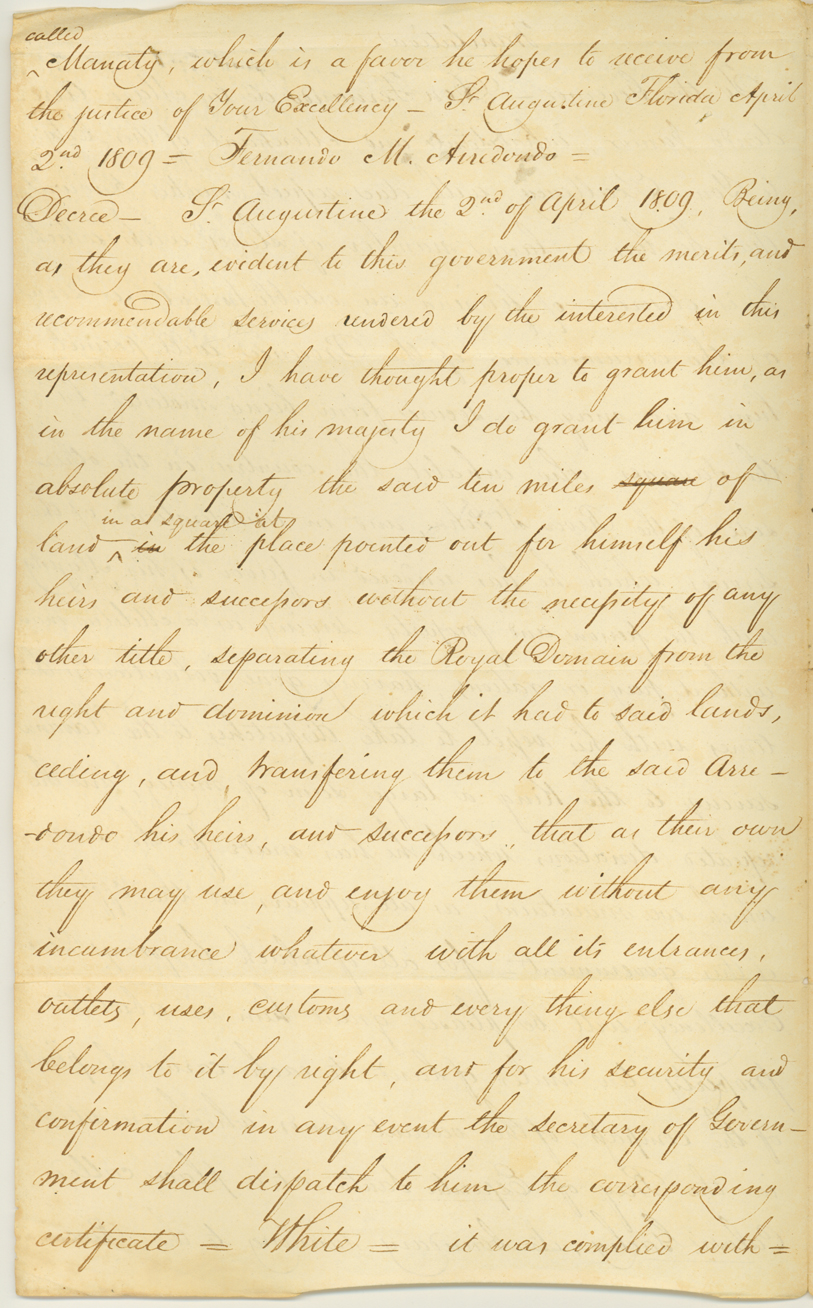 called
^ Manaty, which is a favor he hopes to receive from
the justice of Your Excellency – St Augustine Florida April
2nd 1809 = Fernando M. Arredondo =
Decree – St Augustine the 2nd of April 1809. Being,
as they are, evident to this government the merits, and
recommendable services rendered by the interested in this
representation, I have thought proper to grant him, as
in the name of his majesty I do grant him in
absolute property the said ten miles square of
in a square at
land ^ in the place pointed out for himself his
heirs and successors without the necessity of any
other title, separating the Royal Domain from the
right and dominion which it had to said lands,
ceding, and transfering them to the said Arre-
-dondo his heirs, and successors, that as their own
they may use, and enjoy them without any
incumbrance whatever with all its entrances,
outlets, uses, customs and every thing else that
belongs to it by right, and for his security and
confirmation in any event the secretary of Govern-
ment shall dispatch to him the corresponding
certificate = White = it was complied with =